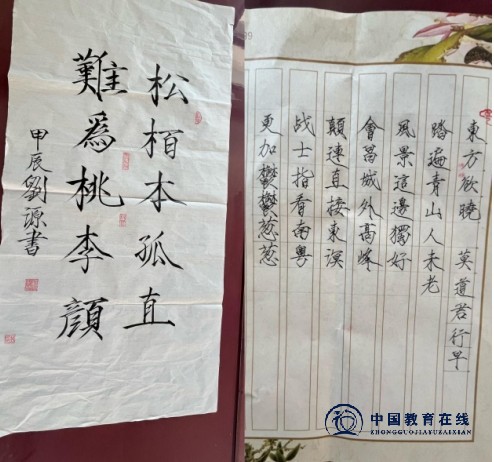 松栢本孤直
難爲桃李顔
甲辰劉源書
東方欲曉 莫道君行早
踏遍青山人未老
風景這邊獨好
會昌城外高峰
顛連直接東溟
战士指看南粤
更加鬱鬱葱葱
中国教育在线
ZHONGGUOJIAOYUZAIXIAN